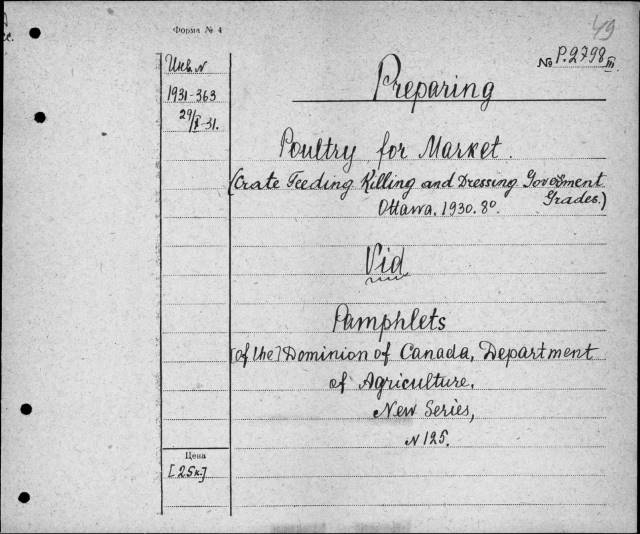 Форма № 4
49
№ P.2798 III
Инв. N
1931-363
29/X-31.
Preparing
Poultry for Market.
(Crate Feeding Killing and Dressing Government
Grades.)
Ottawa. 1930. 8º.
Vid
Pamphlets
[of the] Dominion of Canada, Department
of Agriculture.
New Series,
N 125.
Цена
[25к.]